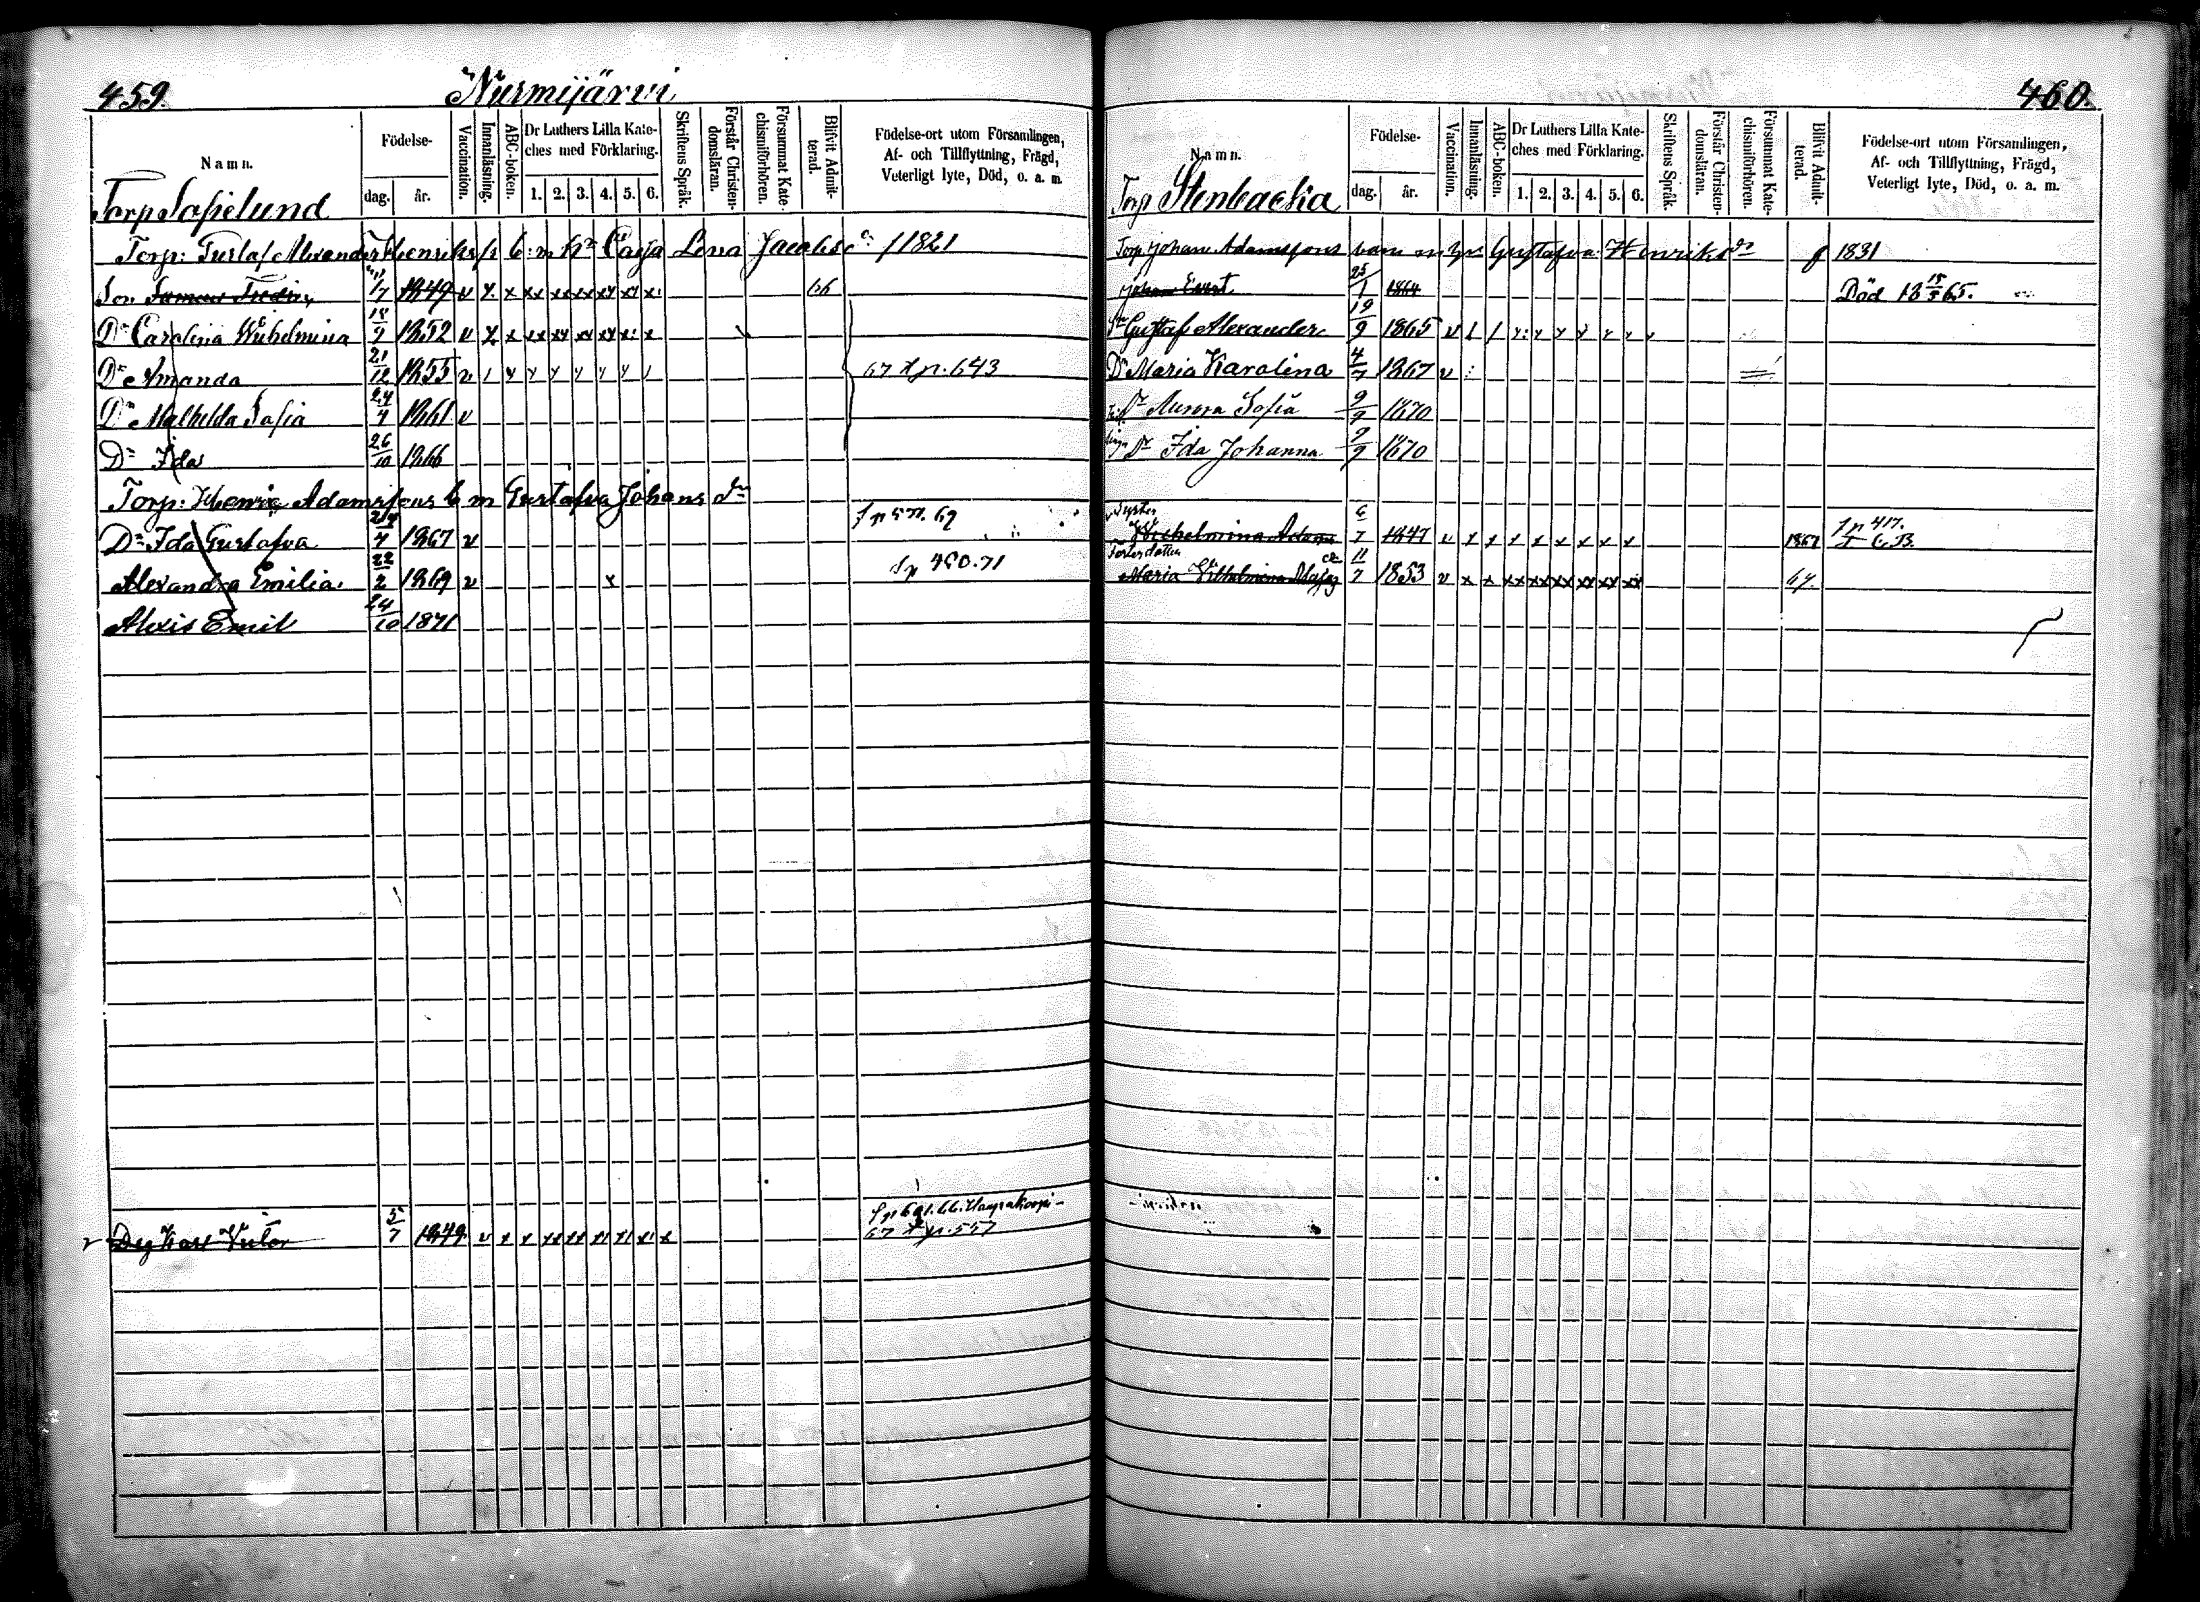 459.
Nurmijärvi
Namn.
Födelse-
dag. år.
Vaccination.
Innanläsning.
ABC-boken.
Dr Luthers Lilla Kate-
ches med Förklaring.
1. 2. 3. 4. 5. 6.
Skriftens Språk.
Förstår Christen-
domsläran.
Försummat Kate-
chismiförhören.
Blifvit Admit-
terad.
Födelse-ort utom Församlingen,
Af- och Tillflyttning, Frägd,
Veterligt lyte, Död, o. a. m.
Torp Sofielund
Torp: Gustaf Alexander Henriks Lena Jacobs 1821
Son 17/7 1849 v x x xx xx xx xx x 66
Dr Carolina Wilhelmina 18/9 1852 v x x xx xx xx xx x: x
Dr Amanda 21/12 1855 v 67 p. 643
Dr Mathilda Sofia 24/4 1861 v
Dr Ida 26/10 1866
Torp: Henric Adamssons b m Gustafva Johans dr
Dr Ida Gustafva 24/4 1867 v
Alexandra Emilia. 22/2 1869 v x Sp 480.71
Alexis Emil 24/10 1871
Dr Karl Victor 5/7 1849 v x x xx xx xx xx x: x 67 p. 557
460.
Namn.
Födelse-
dag. år.
Vaccination.
Innanläsning.
ABC-boken.
Dr Luthers Lilla Kate-
ches med Förklaring.
1. 2. 3. 4. 5. 6.
Skriftens Språk.
Förstår Christen-
domsläran.
Försummat Kate-
chismiförhören.
Blifvit Admit-
terad.
Födelse-ort utom Församlingen,
Af- och Tillflyttning, Frägd,
Veterligt lyte, Död, o. a. m.
Torp Stenbacka
Torp. Johan Adamssons barn m Gustafva Henriks dr f 1831
Johan Evert 25/1 1864 Död 18 15/5 65.
Sn Gustaf Alexander 19/9 1865 v
Dr Maria Karolina 4/7 1867 v
Dr Aurora Sofia 9/9 1870
Dr Ida Johanna 9/9 1870
Syster
Wilhelmina Adams 6/7 1847 v x x x x x x x x 1867 Sp 417.
Fosterdotter
Maria Wilhelmina 11/7 1853 v x x xx xx xx xx xx xx 67.